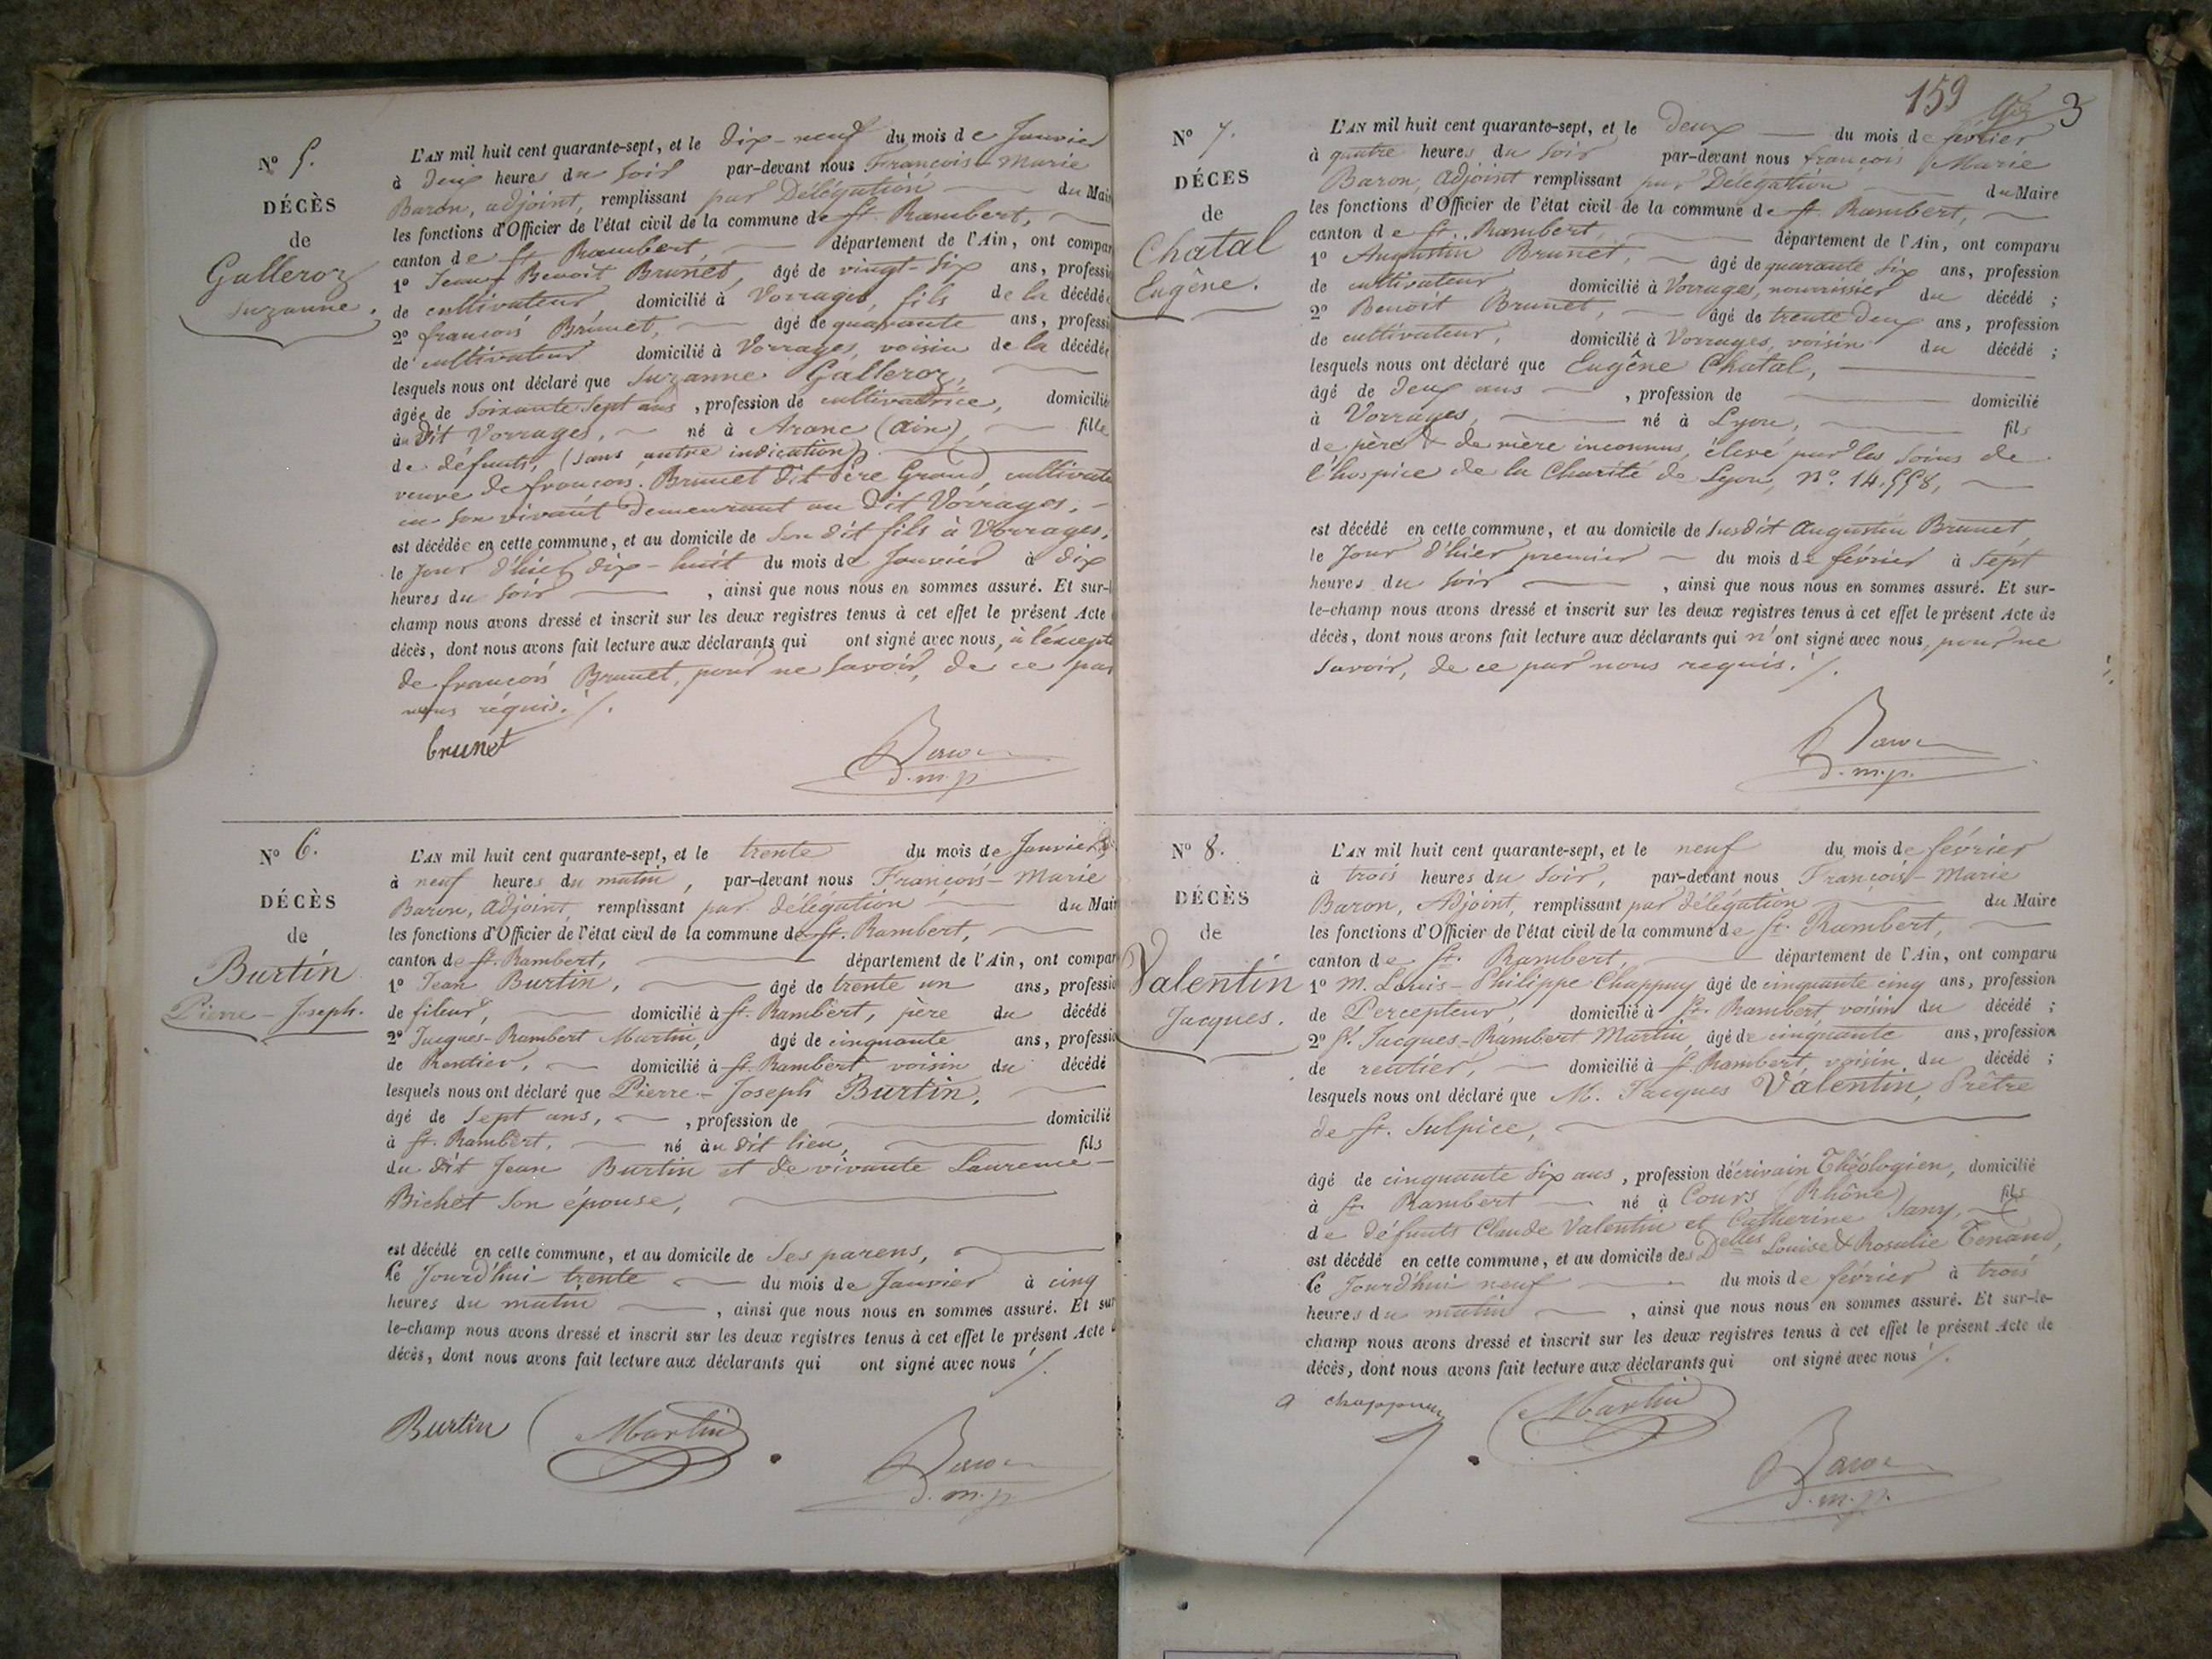 Nº 5.
DÉCÈS
de
Galleroz
Suzanne.
L'AN mil huit cent quarante-sept, et le dix-neuf du mois de Janvier
à deux heures du soir par-devant nous François-Marie
Baron, adjoint, remplissant par Délégation du Mair
les fonctions d'Officier de l'état civil de la commune de St. Rambert,
canton de St. Rambert, département de l'Ain, ont compar
1º Benoit Brunet, âgé de vingt-six ans, professi
de cultivateur, domicilié à Vorrages, fils de la décédée
2º françois Brunet, âgé de quarante ans, professi
de cultivateur domicilié à Vorrages, voisin de la décédée
lesquels nous ont déclaré que Suzanne Galleroz,
âgée de soixante sept ans, profession de cultivatrice, domicilié
au dit Vorrages, né à Aranc (ain), fille
de défunts, (sans autre indication)
veuve de françois Brunet dit Père Grand, cultivate
en son vivant demeurant au dit Vorrages,
est décédée en cette commune, et au domicile de son dit fils à Vorrages,
le jour d'hier dix-huit du mois de Janvier à dix
heures du soir, ainsi que nous nous en sommes assuré. Et sur-l
champ nous avons dressé et inscrit sur les deux registres tenus à cet effet le présent Acte
décès, dont nous avons fait lecture aux déclarants qui ont signé avec nous, à l'excepti
de françois Brunet, pour ne savoir, de ce par
nous réquis./.
brunet
Baron
d.m.p
Nº 6.
DÉCÈS
de
Burtin
Pierre-Joseph.
L'AN mil huit cent quarante-sept, et le trente du mois de Janvier,
à neuf heures du matin, par-devant nous François-Marie
Baron, adjoint, remplissant par délégation du Mair
les fonctions d'Officier de l'état civil de la commune de St. Rambert,
canton de St. Rambert, département de l'Ain, ont compar
1º Jean Burtin, âgé de trente un ans, professio
de fileur, domicilié à St. Rambert, père du décédé
2º Jacques-Rambert Martin, âgé de cinquante ans, professio
de Rentier, domicilié à St. Rambert voisin du décédé
lesquels nous ont déclaré que Pierre-Joseph Burtin,
âgé de sept ans, profession de domicilié
à St. Rambert, né au dit lieu, fils
du dit Jean Burtin et de vivante Laurence
Bichet son épouse,
est décédé en cette commune, et au domicile de ses parens,
le Jourd'hui trente du mois de Janvier à cinq
heures du matin, ainsi que nous nous en sommes assuré. Et sur
le-champ nous avons dressé et inscrit sur les deux registres tenus à cet effet le présent Acte
décès, dont nous avons fait lecture aux déclarants qui ont signé avec nous./.
Burtin Martin
Baron
d.m.p
159
3
Nº 7.
DÉCES
de
Chatal
Eugêne.
L'AN mil huit cent quarante-sept, et le deux du mois de février
à quatre heures du soir par-devant nous françois Marie
Baron, Adjoint remplissant par Délégation du Maire
les fonctions d'Officier de l'état civil de la commune de St. Rambert,
canton de St. Rambert, département de l'Ain, ont comparu
1º Augustin Brunet, âgé de quarante six ans, profession
de cultivateur domicilié à Vorrages, nourrissier du décédé;
2º Benoit Brunet, âgé de trente deux ans, profession
de cultivateur, domicilié à Vorrages, voisin du décédé;
lesquels nous ont déclaré que Eugêne Chatal,
âgé de deux ans, profession de domicilié
à Vorrages, né à Lyon, fils
de père & de mère inconnus, élevé par les soins de
l'hospice de la Charité de Lyon, Nº. 14,558,
est décédé en cette commune, et au domicile de susdit Augustin Brunet,
le Jour d'hier premier du mois de février à sept
heures du soir, ainsi que nous nous en sommes assuré. Et sur-
le-champ nous avons dressé et inscrit sur les deux registres tenus à cet effet le présent Acte de
décès, dont nous avons fait lecture aux déclarants qui n'ont signé avec nous, pour ne
savoir, de ce par nous requis./.
Baron
d.m.p.
Nº 8.
DÉCÈS
de
Valentin
Jacques.
L'AN mil huit cent quarante-sept, et le neuf du mois de février
à trois heures du soir, par-devant nous François-Marie
Baron, Adjoint, remplissant par délégation du Maire
les fonctions d'Officier de l'état civil de la commune de St. Rambert,
canton de St. Rambert, département de l'Ain, ont comparu
1º M. Louis-Philippe Chappuy âgé de cinquante cinq ans, profession
de Percepteur, domicilié à St. Rambert voisin du décédé;
2º Sr. Jacques-Rambert Martin, âgé de cinquante ans, profession
de rentier, domicilié à St. Rambert, voisin du décédé;
lesquels nous ont déclaré que M. Jacques Valentin, Prêtre
de St. Sulpice,
âgé de cinquante six ans, profession d'écrivain Théologien, domicilié
à St. Rambert né à Cours (Rhône) fils
de défunts Claude Valentin et Catherine Sany,
est décédé en cette commune, et au domicile des Delles Louise & Rosalie Tenand,
le Jourd'hui neuf du mois de février à trois
heures du matin, ainsi que nous nous en sommes assuré. Et sur-le-
champ nous avons dressé et inscrit sur les deux registres tenus à cet effet le présent Acte de
décès, dont nous avons fait lecture aux déclarants qui ont signé avec nous./.
chappuy Martin
Baron
d.m.p.